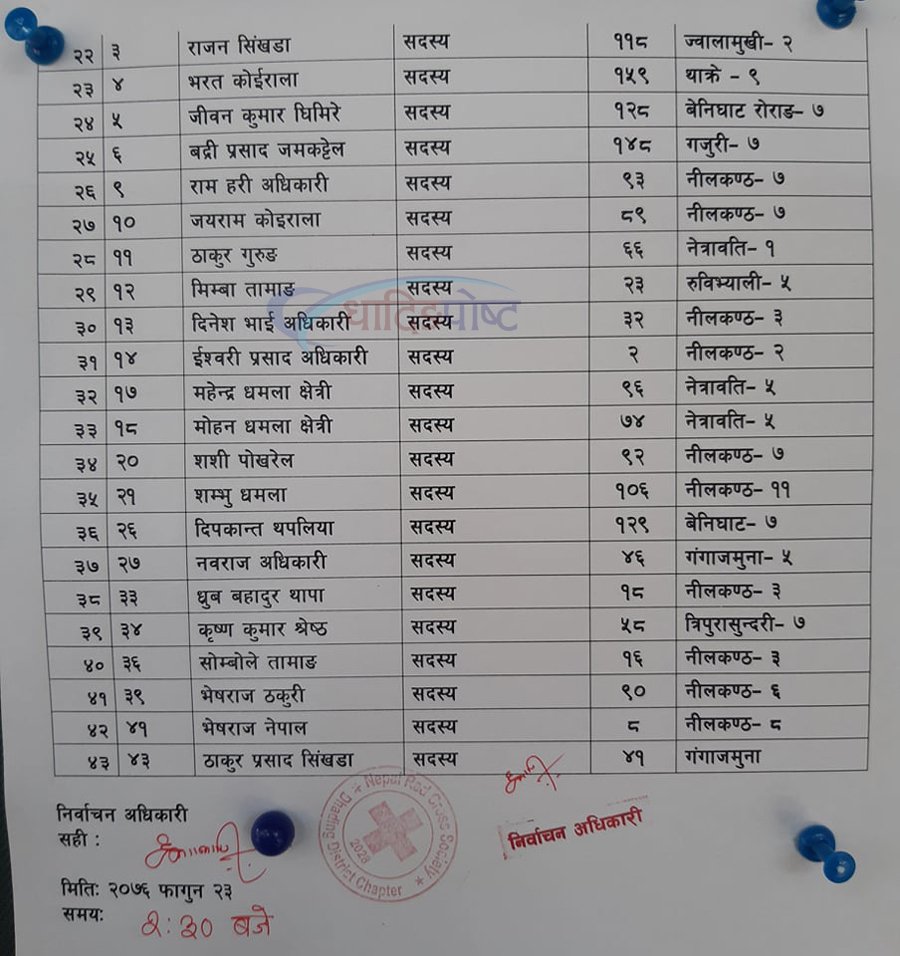 २२ ३ राजन सिंखडा सदस्य ११८ ज्वालामुखी- २
२३ ४ भरत कोईराला सदस्य १५९ थाक्रे - ९
२४ ५ जीवन कुमार घिमिरे सदस्य १२८ बेनिघाट रोराङ- ७
२५ ६ बद्री प्रसाद जमकट्टेल सदस्य १४८ गजुरी- ७
२६ ९ राम हरी अधिकारी सदस्य ९३ नीलकण्ठ- ७
२७ १० जयराम कोइराला सदस्य ८९ नीलकण्ठ- ७
२८ ११ ठाकुर गुरुङ सदस्य ६६ नेत्रावति- १
२९ १२ मिम्बा तामाङ सदस्य २३ रुविभ्याली- ५
धादिङपोष्ट
३० १३ दिनेश भाई अधिकारी सदस्य ३२ नीलकण्ठ- ३
३१ १४ ईश्वरी प्रसाद अधिकारी सदस्य २ नीलकण्ठ- २
३२ १७ महेन्द्र धमला क्षेत्री सदस्य ९६ नेत्रावति- ५
३३ १८ मोहन धमला क्षेत्री सदस्य ७४ नेत्रावति- ५
३४ २० शशी पोखरेल सदस्य ९२ नीलकण्ठ- ७
३५ २१ शम्भु धमला सदस्य १०६ नीलकण्ठ- ११
३६ २६ दिपकान्त थपलिया सदस्य १२९ बेनिघाट- ७
३७ २७ नवराज अधिकारी सदस्य ४६ गंगाजमुना- ५
३८ ३३ ध्रुब बहादुर थापा सदस्य १८ नीलकण्ठ- ३
३९ ३४ कृष्ण कुमार श्रेष्ठ सदस्य ५८ त्रिपुरासुन्दरी- ७
४० ३६ सोम्बोले तामाङ सदस्य १६ नीलकण्ठ- ३
४१ ३९ भेषराज ठकुरी सदस्य ९० नीलकण्ठ- ६
४२ ४१ भेषराज नेपाल सदस्य ८ नीलकण्ठ- ८
४३ ४३ ठाकुर प्रसाद सिंखडा सदस्य ४१ गंगाजमुना
निर्वाचन अधिकारी
सही :
Nepal Red Cross Society
Dhading District Chapter
2028
निर्वाचन अधिकारी
मिति: २०७६ फागुन २३
समय: २:३० बजे